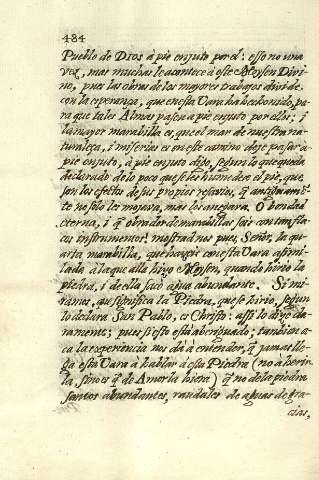 484
Pueblo de Dios à pie enjuto por el: esso no una
vez, mas muchas le acontece à este Moysen Divi-
no, pues las obras de los mayores trabajos divide
con la esperança, que en esta Vara ha descansido, pa-
ra que tales Almas passen à pie enjuto por ellos; i
la mayor marabilla es, que el mar de nuestra na-
turaleça, i miserias es en este camino deje passar à
pie enjuto, à pie enjuto digo, segun lo que queda
declarado de lo poco que se les humedece el pie, que
son los efetos de sus propios resavios, q̃ antiguam.te
no solo les mojava, mas los anegava. O bondad
eterna, i q̃ obrador de marabillas sois con tan fla-
cos instrumentos! mostradnos pues, Señor, la qu-
arta marabilla, que haçeis con esta Vara assimi-
lada à la que allà hiço Moysen, quando hirio la
piedra, i de ella sacò agua abundante. Si mi-
ramos, que significa la Piedra, que se hirio, segun
lo declara San Pablo, es Christo: assi lo dije cla-
ramente; pues si esto està aberiguado; tambien a-
ca la experiencia nos dà à entender, q̃ jamas lle-
ga esta Vara à hablar à esta Piedra (no à herir-
la, sino es q̃ de Amor la hiera) q̃ no de la piedra
santos abundantes, raudales de aguas de gra-
cias,